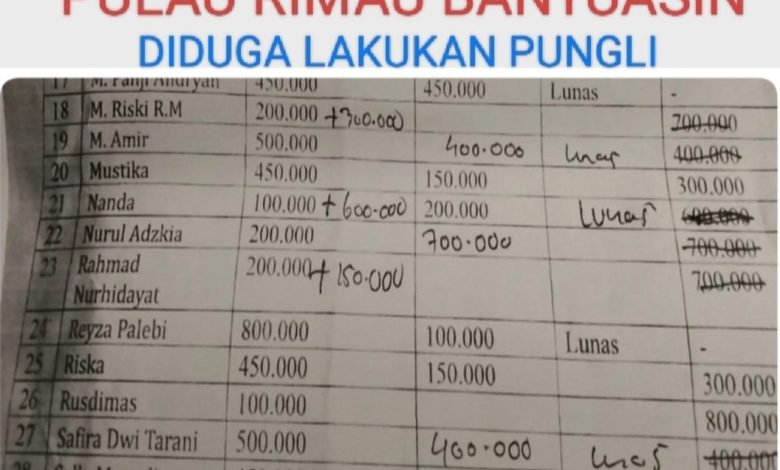 PULAU RIMAU BANYUASIN
DIDUGA LAKUKAN PUNGLI
17 M. Panji Andryan 450.000 450.000 Lunas -
18 M. Riski R.M 200.000 +300.000 700.000
19 M. Amir 500.000 400.000 Lunas 400.000
20 Mustika 450.000 150.000 300.000
21 Nanda 100.000 +600.000 200.000 Lunas 600.000
22 Nurul Adzkia 200.000 700.000 700.000
23 Rahmad 200.000 +150.000 700.000
Nurhidayat
24 Reyza Palebi 800.000 100.000 Lunas -
25 Riska 450.000 150.000 300.000
26 Rusdimas 100.000 800.000
27 Safira Dwi Tarani 500.000 400.000 Lunas 400.000
28